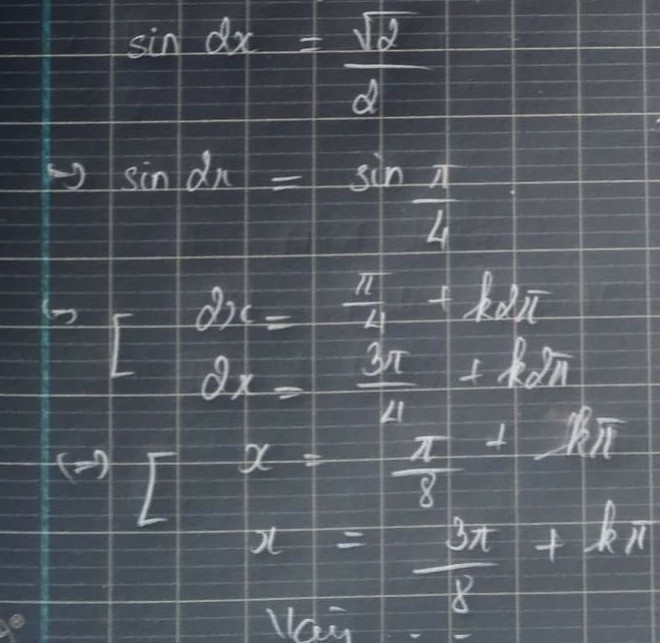 sin 2x = √2/2
⇔ sin 2x = sin π/4
⇔ [ 2x = π/4 + k2π
2x = 3π/4 + k2π
⇔ [ x = π/8 + kπ
x = 3π/8 + kπ
Vậy ...